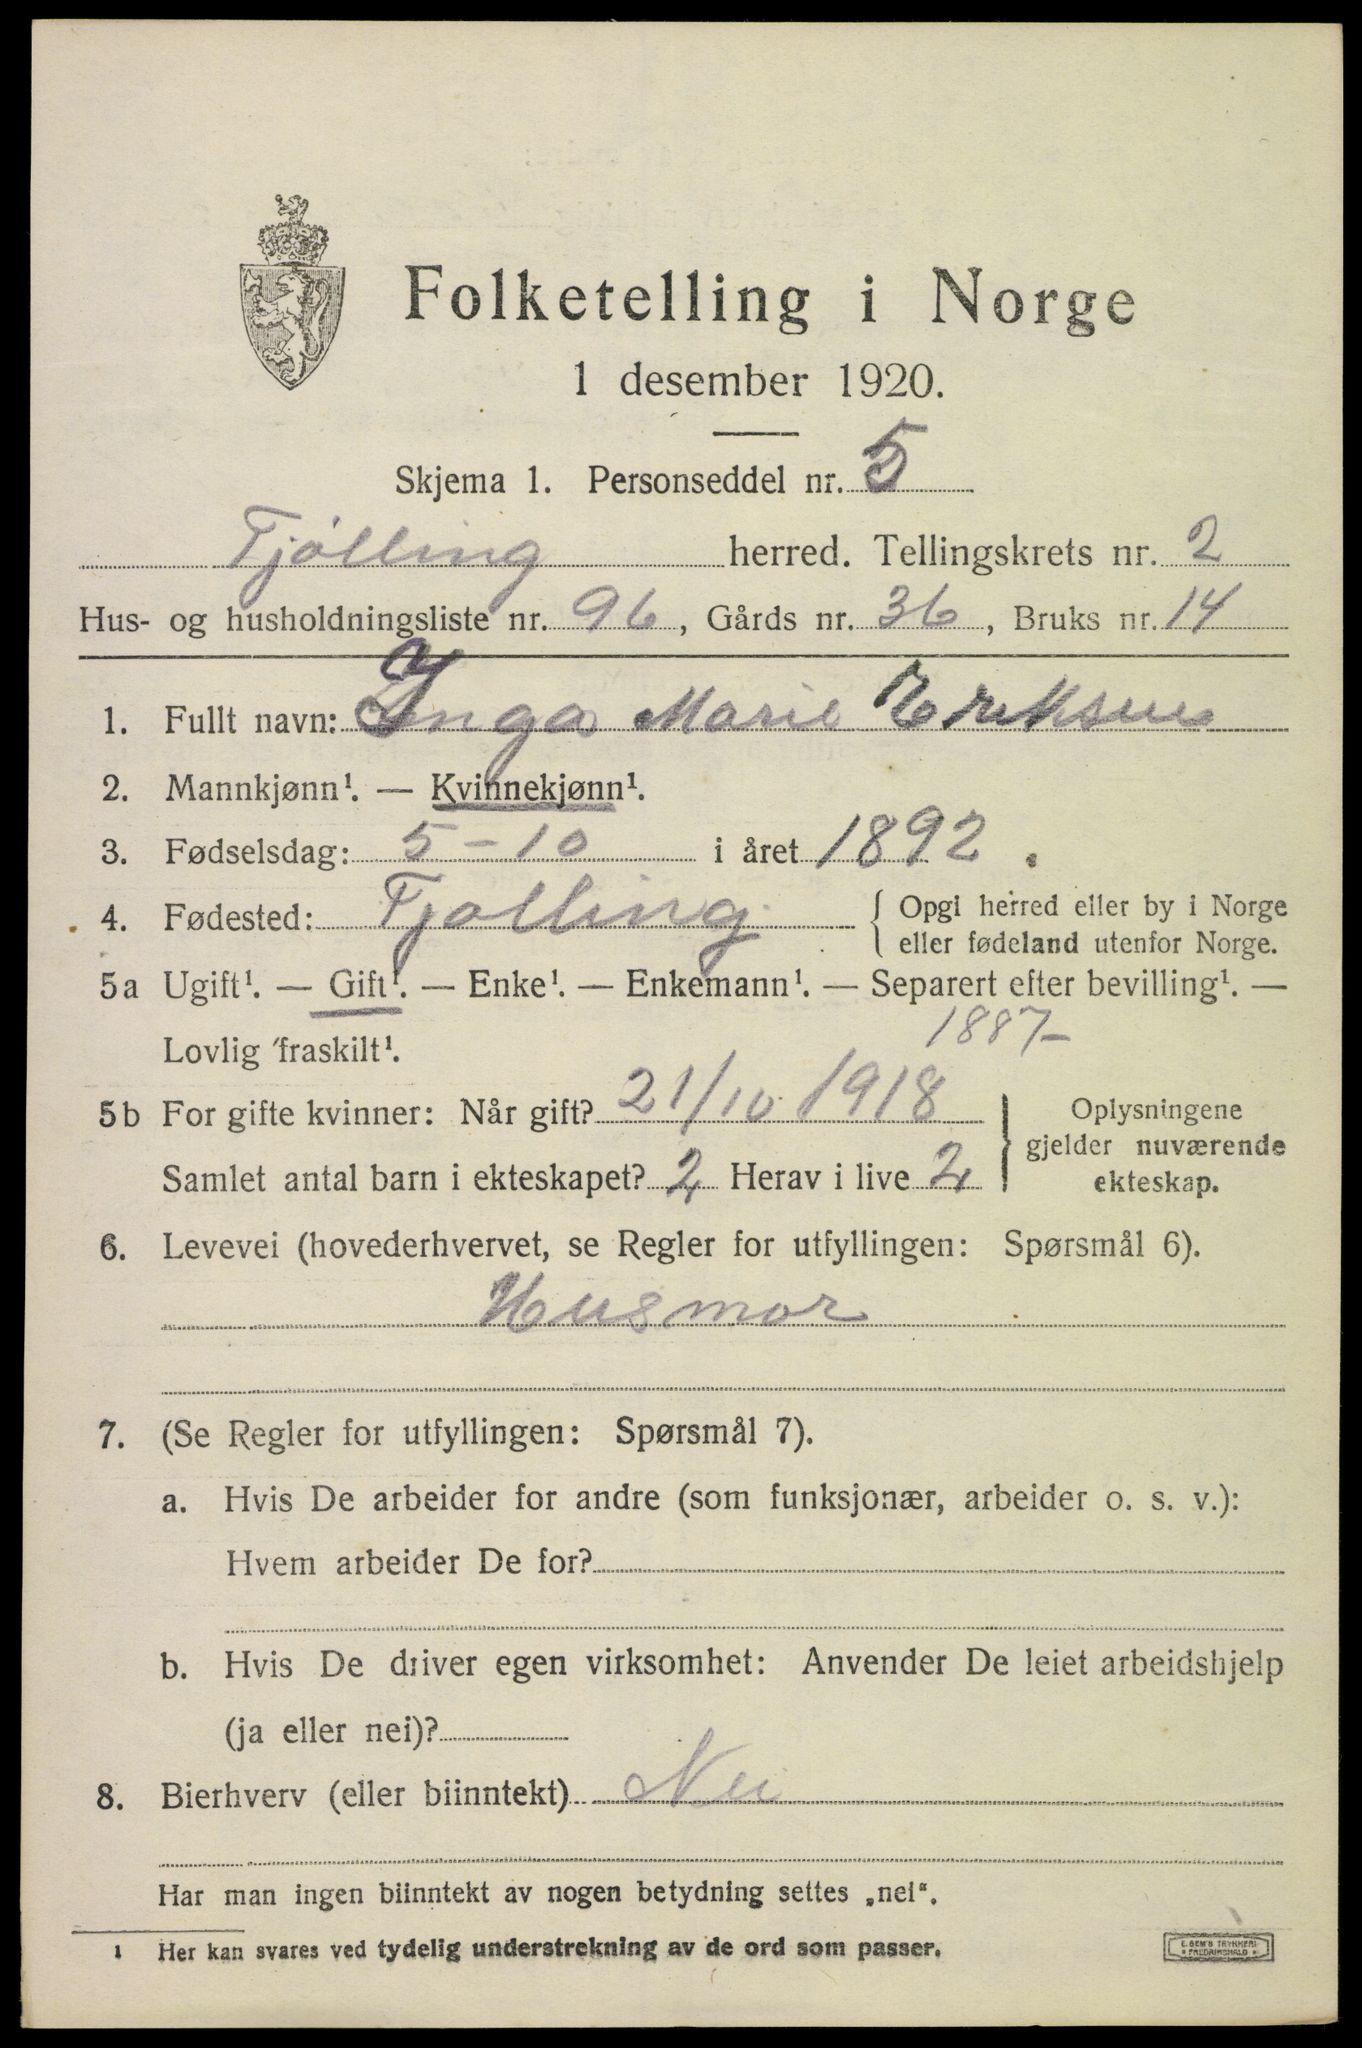 Folketelling i Norge
1 desember 1920.
Skjema 1. Personseddel nr. 5
Tjølling herred. Tellingskrets nr. 2
Hus- og husholdningsliste nr. 96, Gårds nr. 36, Bruks nr. 14
1. Fullt navn: Inga Marie Eriksen
2. Mannkjønn¹. — Kvinnekjønn¹.
3. Fødselsdag: 5-10 i året 1892.
4. Fødested: Tjølling { Opgi herred eller by i Norge
eller fødeland utenfor Norge.
5a Ugift¹. — Gift¹. — Enke¹. — Enkemann¹. — Separert efter bevilling¹. —
Lovlig fraskilt¹.
1887-
5b For gifte kvinner: Når gift? 21/10 1918
Samlet antal barn i ekteskapet? 2 Herav i live 2
} Oplysningene
gjelder nuværende
ekteskap.
6. Levevei (hovederhvervet, se Regler for utfyllingen: Spørsmål 6).
Husmor
7. (Se Regler for utfyllingen: Spørsmål 7).
a. Hvis De arbeider for andre (som funksjonær, arbeider o. s. v.):
Hvem arbeider De for?
b. Hvis De driver egen virksomhet: Anvender De leiet arbeidshjelp
(ja eller nei)?
8. Bierhverv (eller biinntekt) Nei
Har man ingen biinntekt av nogen betydning settes „nei“.
1 Her kan svares ved tydelig understrekning av de ord som passer.
E. SEM'S TRYKKERI
FREDRIKSHALD